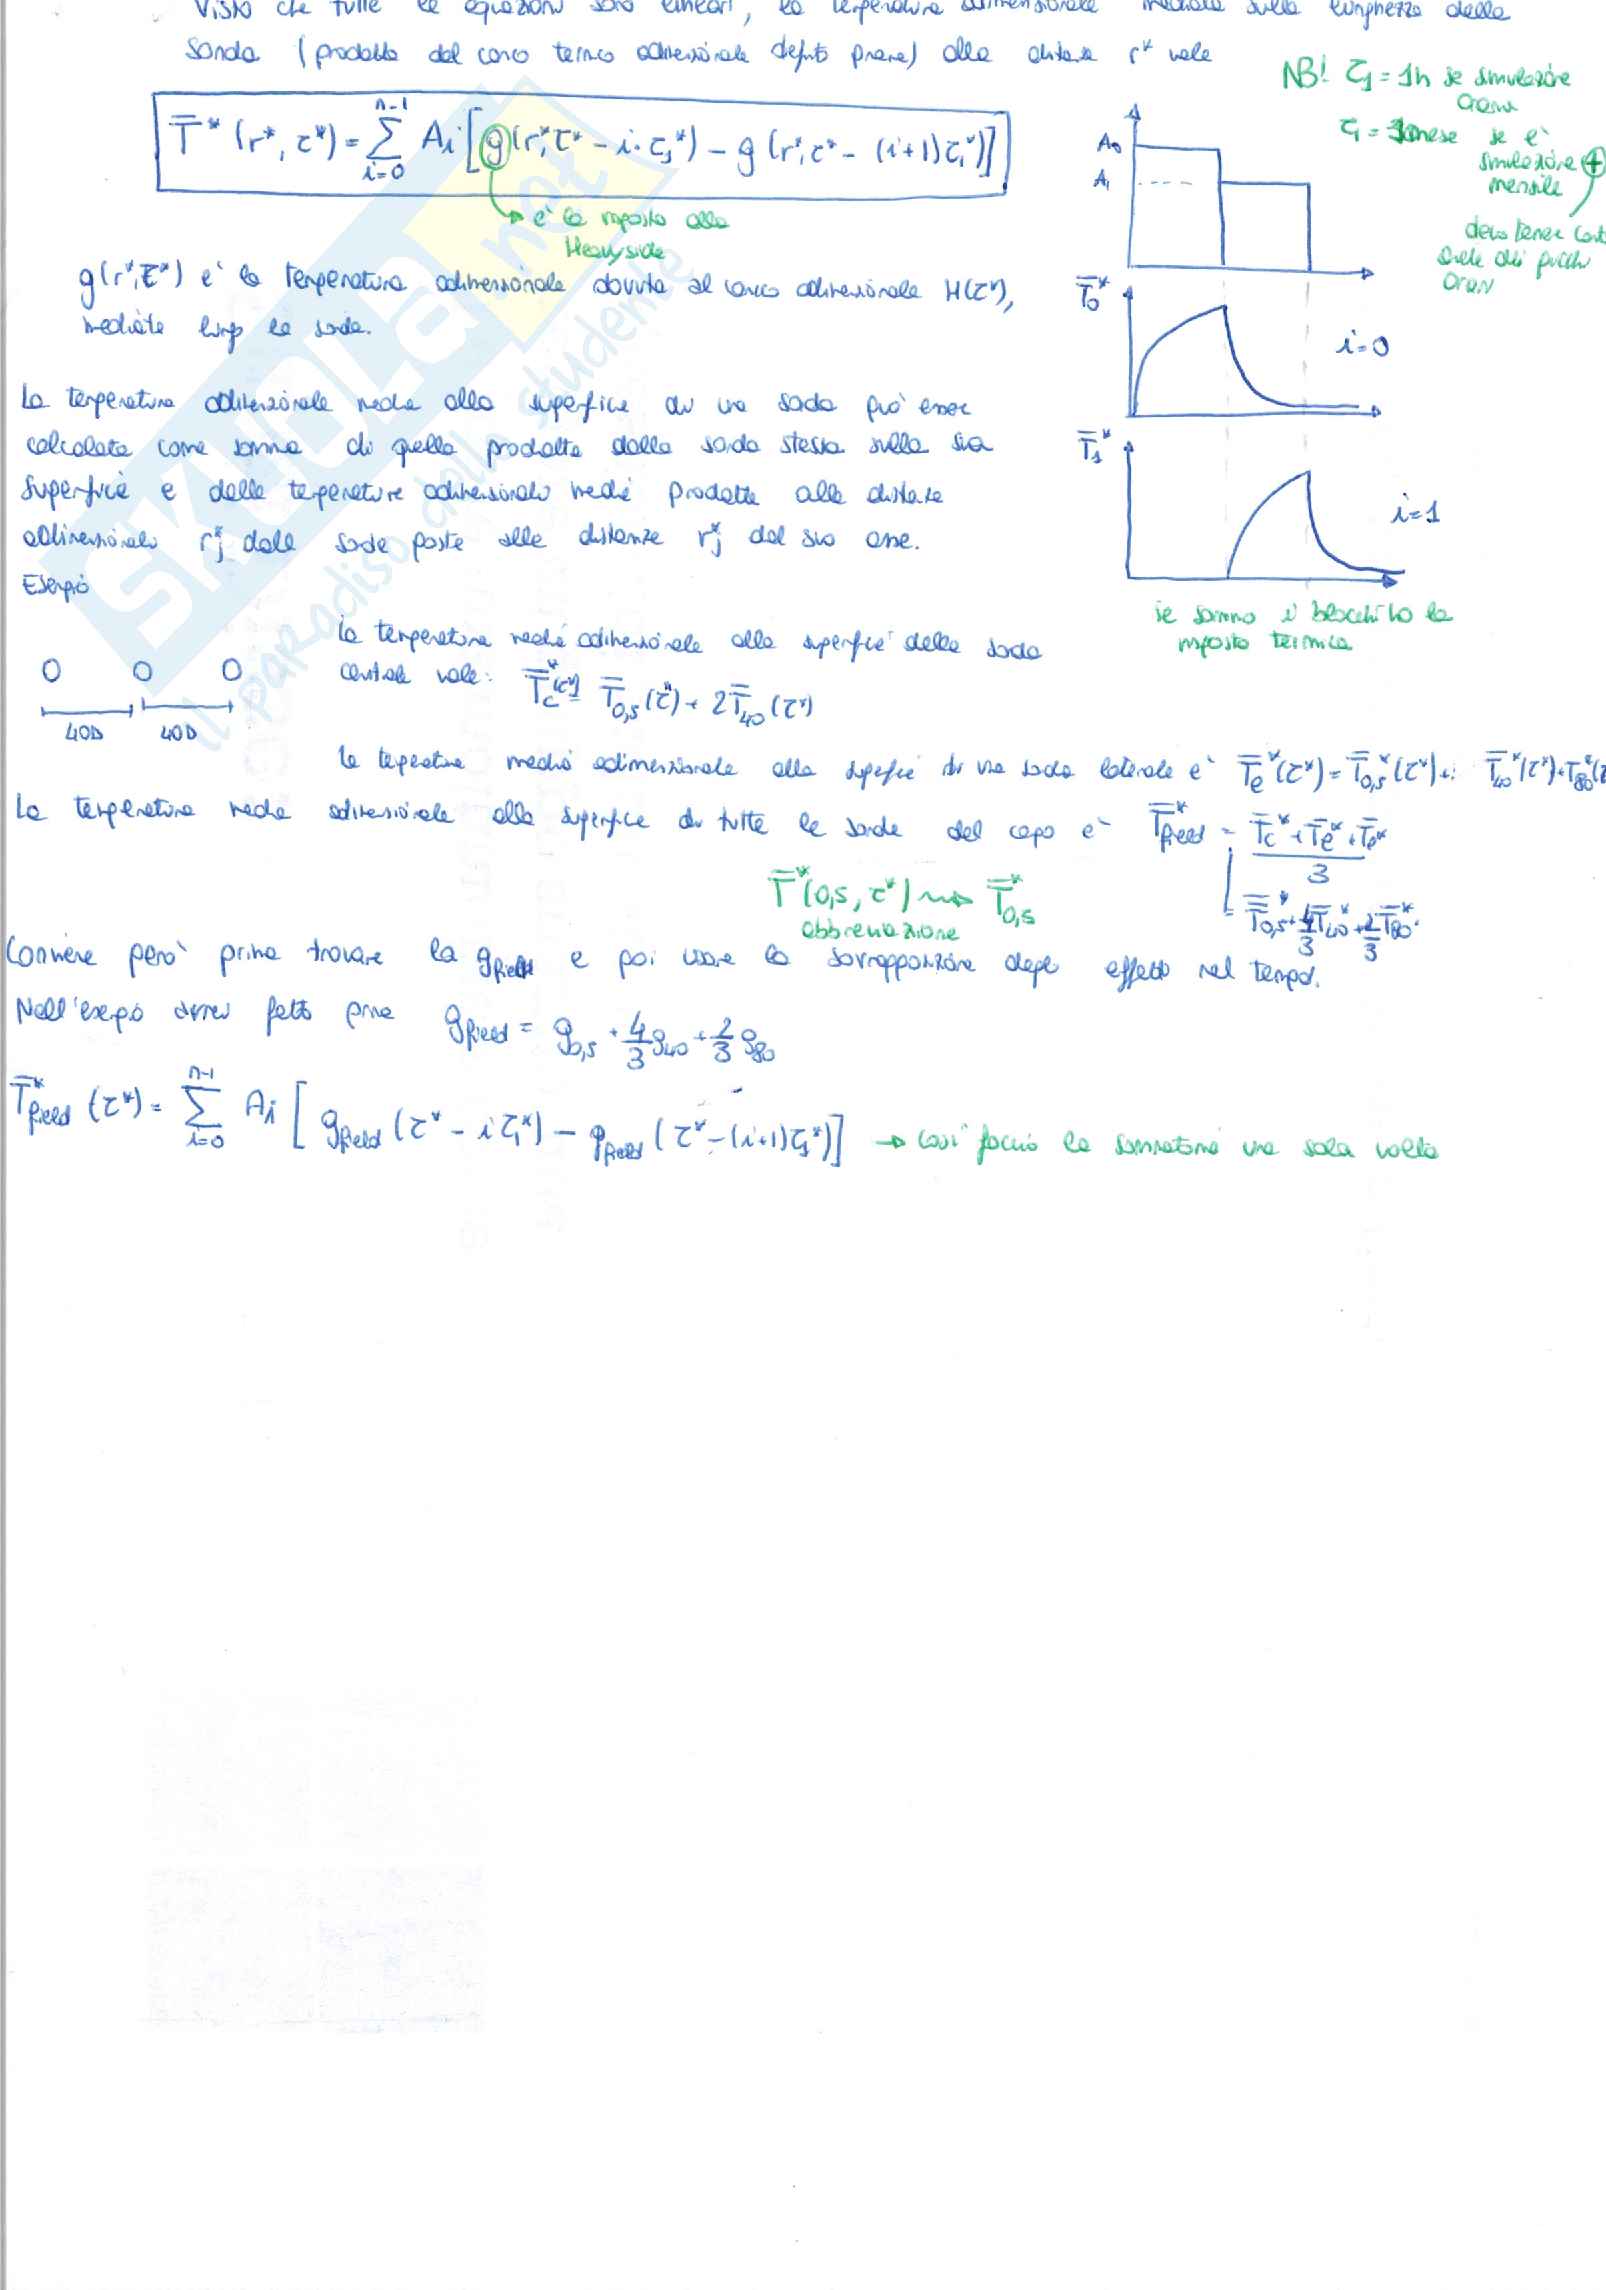 Visto che tutte le equazioni sono lineari, la temperatura adimensionale mediata sulla lunghezza della
sonda (prodotta dal carico termico adimensionale definito prima) alla distanza r* vale
T̄*(r*, τ*) = Σ_{i=0}^{n-1} Ai [g(r*, τ* - i·τ1*) - g(r*, τ* - (i+1)τ1*)]
è la risposta alla
Heavyside
NB! τ1 = 1h se simulazione
oraria
τ1 = 1 mese se è
simulazione +
mensile
devo tenere conto
anche dei picchi
orari
A0
A1
T̄0*
i=0
T̄1*
i=1
se sommo i blocchi ho la
risposta termica
g(r*, τ*) è la temperatura adimensionale dovuta al carico adimensionale H(τ*),
mediate lungo la sonda.
La temperatura adimensionale media alla superficie di una sonda può essere
calcolata come somma di quella prodotta dalla sonda stessa sulla sua
superficie e delle temperature adimensionali medie prodotte alla distanza
adimensionale rj* dalle sonde poste alle distanze rj* dal suo asse.
Esempio
40D 40D
la temperatura media adimensionale alla superficie della sonda
centrale vale: T̄c*(τ*) = T̄0,5(τ*) + 2T̄40(τ*)
la temperatura media adimensionale alla superficie di una sonda laterale è T̄e*(τ*) = T̄0,5*(τ*) + T̄40*(τ*) + T80*(τ
La temperatura media adimensionale alla superficie di tutte le sonde del campo è T̄field* = (T̄c* + T̄e* + T̄e*)/3
= T̄0,5* + 4/3 T̄40* + 2/3 T̄80*
T̄*(0,5, τ*) → T̄0,5*
abbreviazione
Conviene però prima trovare la gfield e poi usare la sovrapposizione degli effetti nel tempo.
Nell'esempio avrei fatto prima gfield = g0,5 + 4/3 g40 + 2/3 g80
T̄field*(τ*) = Σ_{i=0}^{n-1} Ai [gfield(τ* - iτ1*) - gfield(τ* - (i+1)τ1*)] → così faccio la sommatoria una sola volta
SKUOLA.net
il paradiso dello studente